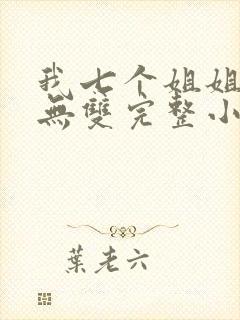 我七个姐姐
無雙完整小
葉老六